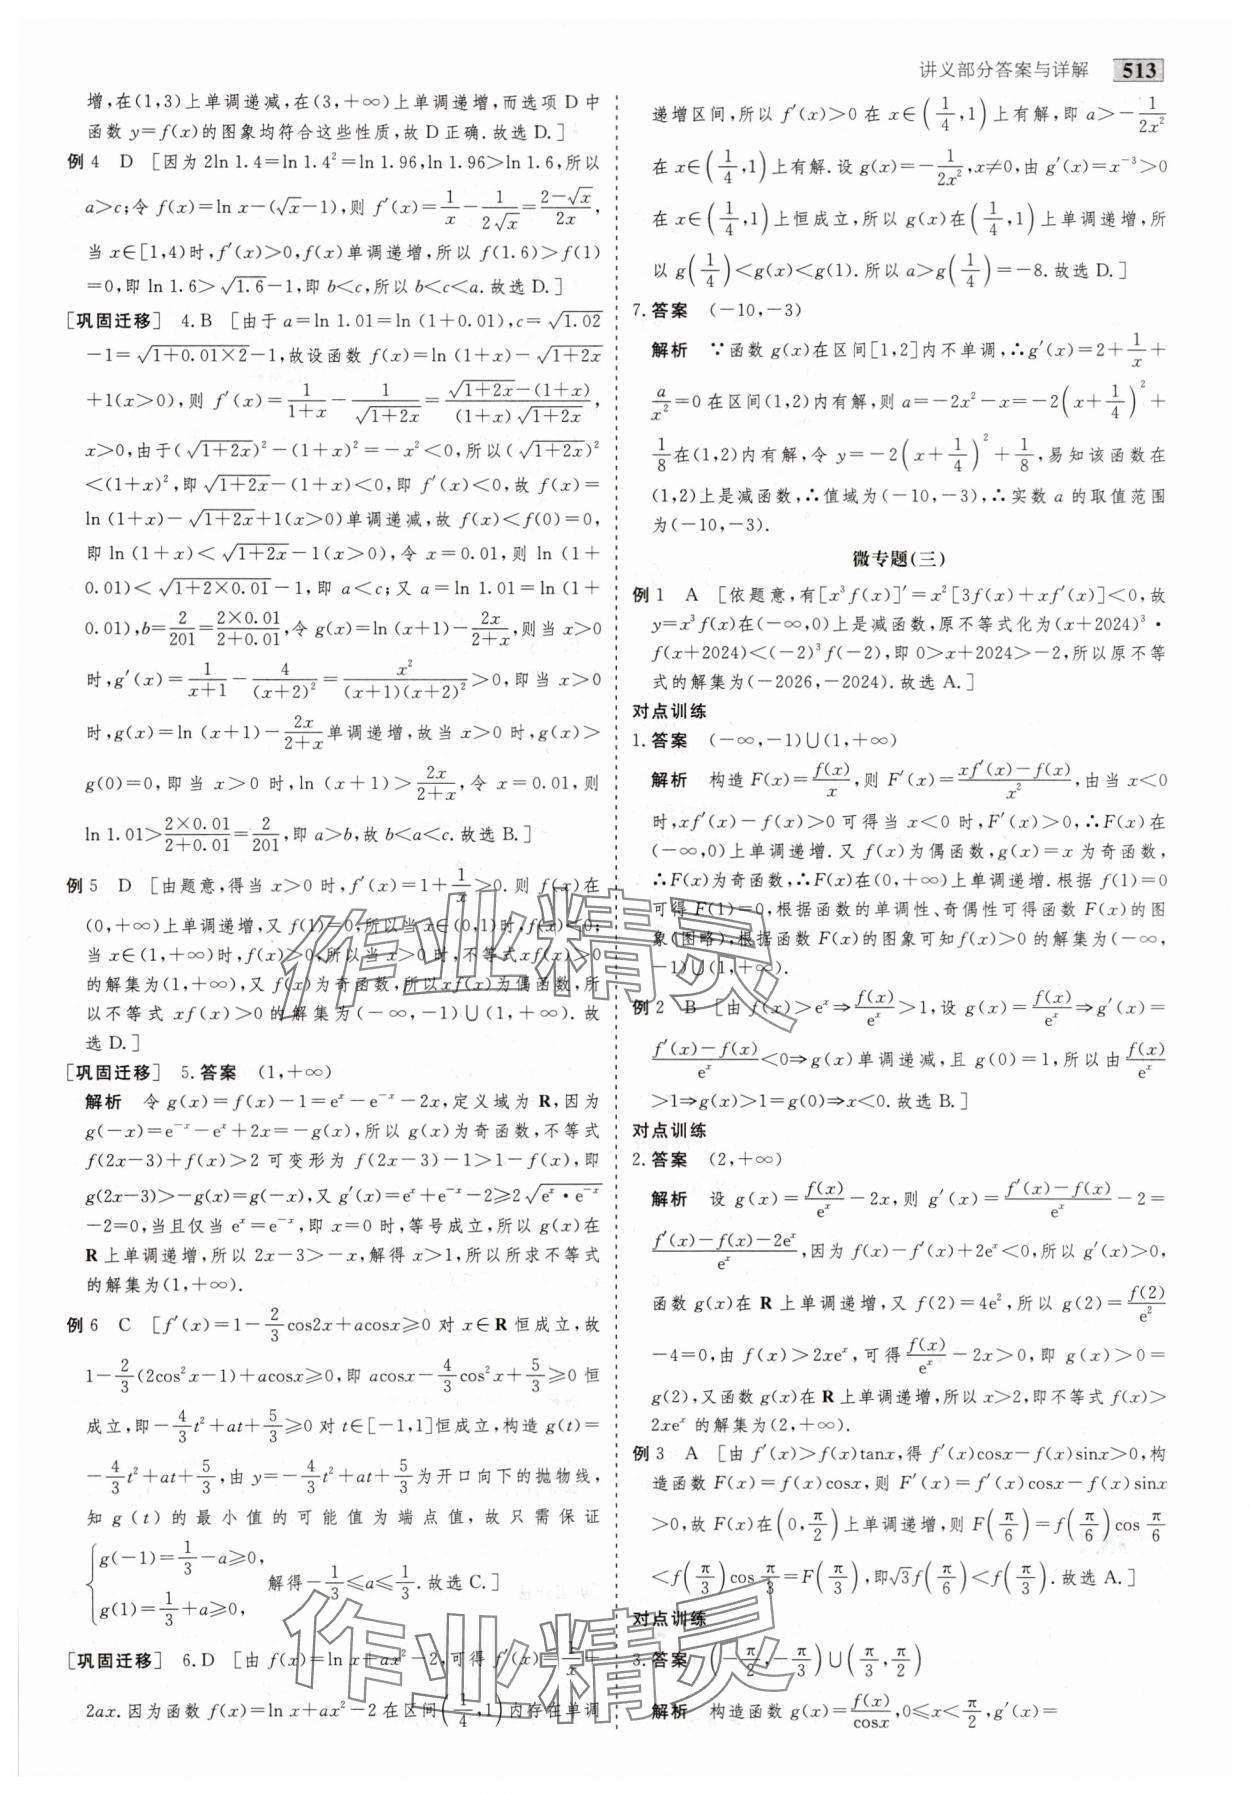 讲义部分答案与详解 513
增,在(1,3)上单调递减,在(3,+∞)上单调递增,而选项 D 中
函数 y=f(x)的图象均符合这些性质,故 D 正确.故选 D.]
例 4 D [因为 2ln 1.4=ln 1.4²=ln 1.96,ln 1.96>ln 1.6,所以
a>c;令 f(x)=ln x-(√x-1),则 f′(x)=1/x-1/(2√x)=(2-√x)/(2x),
当 x∈[1,4)时,f′(x)>0,f(x)单调递增,所以 f(1.6)>f(1)
=0,即 ln 1.6>√1.6-1,即 b<c,所以 b<c<a.故选 D.]
[巩固迁移] 4.B [由于 a=ln 1.01=ln (1+0.01),c=√1.02
-1=√(1+0.01×2)-1,故设函数 f(x)=ln (1+x)-√(1+2x)
+1(x>0),则 f′(x)=1/(1+x)-1/√(1+2x)=(√(1+2x)-(1+x))/((1+x)√(1+2x)),
x>0,由于(√(1+2x))²-(1+x)²=-x²<0,所以(√(1+2x))²
<(1+x)²,即√(1+2x)-(1+x)<0,即 f′(x)<0,故 f(x)=
ln (1+x)-√(1+2x)+1(x>0)单调递减,故 f(x)<f(0)=0,
即 ln (1+x)<√(1+2x)-1(x>0),令 x=0.01,则 ln (1+
0.01)<√(1+2×0.01)-1,即 a<c;又 a=ln 1.01=ln (1+
0.01),b=2/201=(2×0.01)/(2+0.01),令 g(x)=ln (x+1)-2x/(2+x),则当 x>0
时,g′(x)=1/(x+1)-4/(x+2)²=x²/((x+1)(x+2)²)>0,即当 x>0
时,g(x)=ln (x+1)-2x/(2+x)单调递增,故当 x>0 时,g(x)>
g(0)=0,即当 x>0 时,ln (x+1)>2x/(2+x),令 x=0.01,则
ln 1.01>(2×0.01)/(2+0.01)=2/201,即 a>b,故 b<a<c.故选 B.]
例 5 D [由题意,得当 x>0 时,f′(x)=1+1/x>0.则 f(x)在
(0,+∞)上单调递增,又 f(1)=0,所以当 x∈(0,1)时,f(x)<0;
当 x∈(1,+∞)时,f(x)>0,所以当 x>0 时,不等式 xf(x)>0
的解集为(1,+∞),又 f(x)为奇函数,所以 xf(x)为偶函数,所
以不等式 xf(x)>0 的解集为(-∞,-1)∪(1,+∞).故
选 D.]
[巩固迁移] 5.答案 (1,+∞)
解析 令 g(x)=f(x)-1=eˣ-e⁻ˣ-2x,定义域为 R,因为
g(-x)=e⁻ˣ-eˣ+2x=-g(x),所以 g(x)为奇函数,不等式
f(2x-3)+f(x)>2 可变形为 f(2x-3)-1>1-f(x),即
g(2x-3)>-g(x)=g(-x),又 g′(x)=eˣ+e⁻ˣ-2≥2√(eˣ·e⁻ˣ)
-2=0,当且仅当 eˣ=e⁻ˣ,即 x=0 时,等号成立,所以 g(x)在
R 上单调递增,所以 2x-3>-x,解得 x>1,所以所求不等式
的解集为(1,+∞).
例 6 C [f′(x)=1-2/3cos2x+acosx≥0 对 x∈R 恒成立,故
1-2/3(2cos²x-1)+acosx≥0,即 acosx-4/3cos²x+5/3≥0 恒
成立,即-4/3t²+at+5/3≥0 对 t∈[-1,1]恒成立,构造 g(t)=
-4/3t²+at+5/3,由 y=-4/3t²+at+5/3为开口向下的抛物线,
知 g(t)的最小值的可能值为端点值,故只需保证
{g(-1)=1/3-a≥0,
g(1)=1/3+a≥0, 解得-1/3≤a≤1/3.故选 C.]
[巩固迁移] 6.D [由 f(x)=ln x+ax²-2,可得 f′(x)=1/x+
2ax.因为函数 f(x)=ln x+ax²-2 在区间(1/4,1)内存在单调
递增区间,所以 f′(x)>0 在 x∈(1/4,1)上有解,即 a>-1/(2x²)
在 x∈(1/4,1)上有解.设 g(x)=-1/(2x²),x≠0,由 g′(x)=x⁻³>0
在 x∈(1/4,1)上恒成立,所以 g(x)在(1/4,1)上单调递增,所
以 g(1/4)<g(x)<g(1).所以 a>g(1/4)=-8.故选 D.]
7.答案 (-10,-3)
解析 ∵函数 g(x)在区间[1,2]内不单调,∴g′(x)=2+1/x+
a/x²=0 在区间(1,2)内有解,则 a=-2x²-x=-2(x+1/4)²+
1/8在(1,2)内有解,令 y=-2(x+1/4)²+1/8,易知该函数在
(1,2)上是减函数,∴值域为(-10,-3),∴实数 a 的取值范围
为(-10,-3).
微专题(三)
例 1 A [依题意,有[x³f(x)]′=x²[3f(x)+xf′(x)]<0,故
y=x³f(x)在(-∞,0)上是减函数,原不等式化为(x+2024)³·
f(x+2024)<(-2)³f(-2),即 0>x+2024>-2,所以原不等
式的解集为(-2026,-2024).故选 A.]
对点训练
1.答案 (-∞,-1)∪(1,+∞)
解析 构造 F(x)=f(x)/x,则 F′(x)=(xf′(x)-f(x))/x²,由当 x<0
时,xf′(x)-f(x)>0 可得当 x<0 时,F′(x)>0,∴F(x)在
(-∞,0)上单调递增.又 f(x)为偶函数,g(x)=x 为奇函数,
∴F(x)为奇函数,∴F(x)在(0,+∞)上单调递增.根据 f(1)=0
可得 F(1)=0,根据函数的单调性、奇偶性可得函数 F(x)的图
象(图略),根据函数 F(x)的图象可知 f(x)>0 的解集为(-∞,
-1)∪(1,+∞).
例 2 B [由 f(x)>eˣ⇒f(x)/eˣ>1,设 g(x)=f(x)/eˣ⇒g′(x)=
(f′(x)-f(x))/eˣ<0⇒g(x)单调递减,且 g(0)=1,所以由f(x)/eˣ
>1⇒g(x)>1=g(0)⇒x<0.故选 B.]
对点训练
2.答案 (2,+∞)
解析 设 g(x)=f(x)/eˣ-2x,则 g′(x)=(f′(x)-f(x))/eˣ-2=
(f′(x)-f(x)-2eˣ)/eˣ,因为 f(x)-f′(x)+2eˣ<0,所以 g′(x)>0,
函数 g(x)在 R 上单调递增,又 f(2)=4e²,所以 g(2)=f(2)/e²
-4=0,由 f(x)>2xeˣ,可得f(x)/eˣ-2x>0,即 g(x)>0=
g(2),又函数 g(x)在 R 上单调递增,所以 x>2,即不等式 f(x)>
2xeˣ 的解集为(2,+∞).
例 3 A [由 f′(x)>f(x)tanx,得 f′(x)cosx-f(x)sinx>0,构
造函数 F(x)=f(x)cosx,则 F′(x)=f′(x)cosx-f(x)sinx
>0,故 F(x)在(0,π/2)上单调递增,则 F(π/6)=f(π/6)cos π/6
<f(π/3)cos π/3=F(π/3),即√3f(π/6)<f(π/3).故选 A.]
对点训练
3.答案 (-π/2,-π/3)∪(π/3,π/2)
解析 构造函数 g(x)=f(x)/cosx,0≤x<π/2,g′(x)=
作业精灵
作业精灵